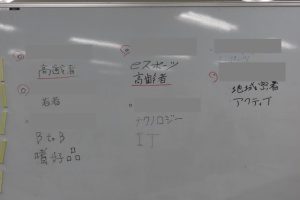 高齢者
若者
BtoB
嗜好品
eスポーツ
高齢者
テクノロジー
IT
地域密着
アクティブ